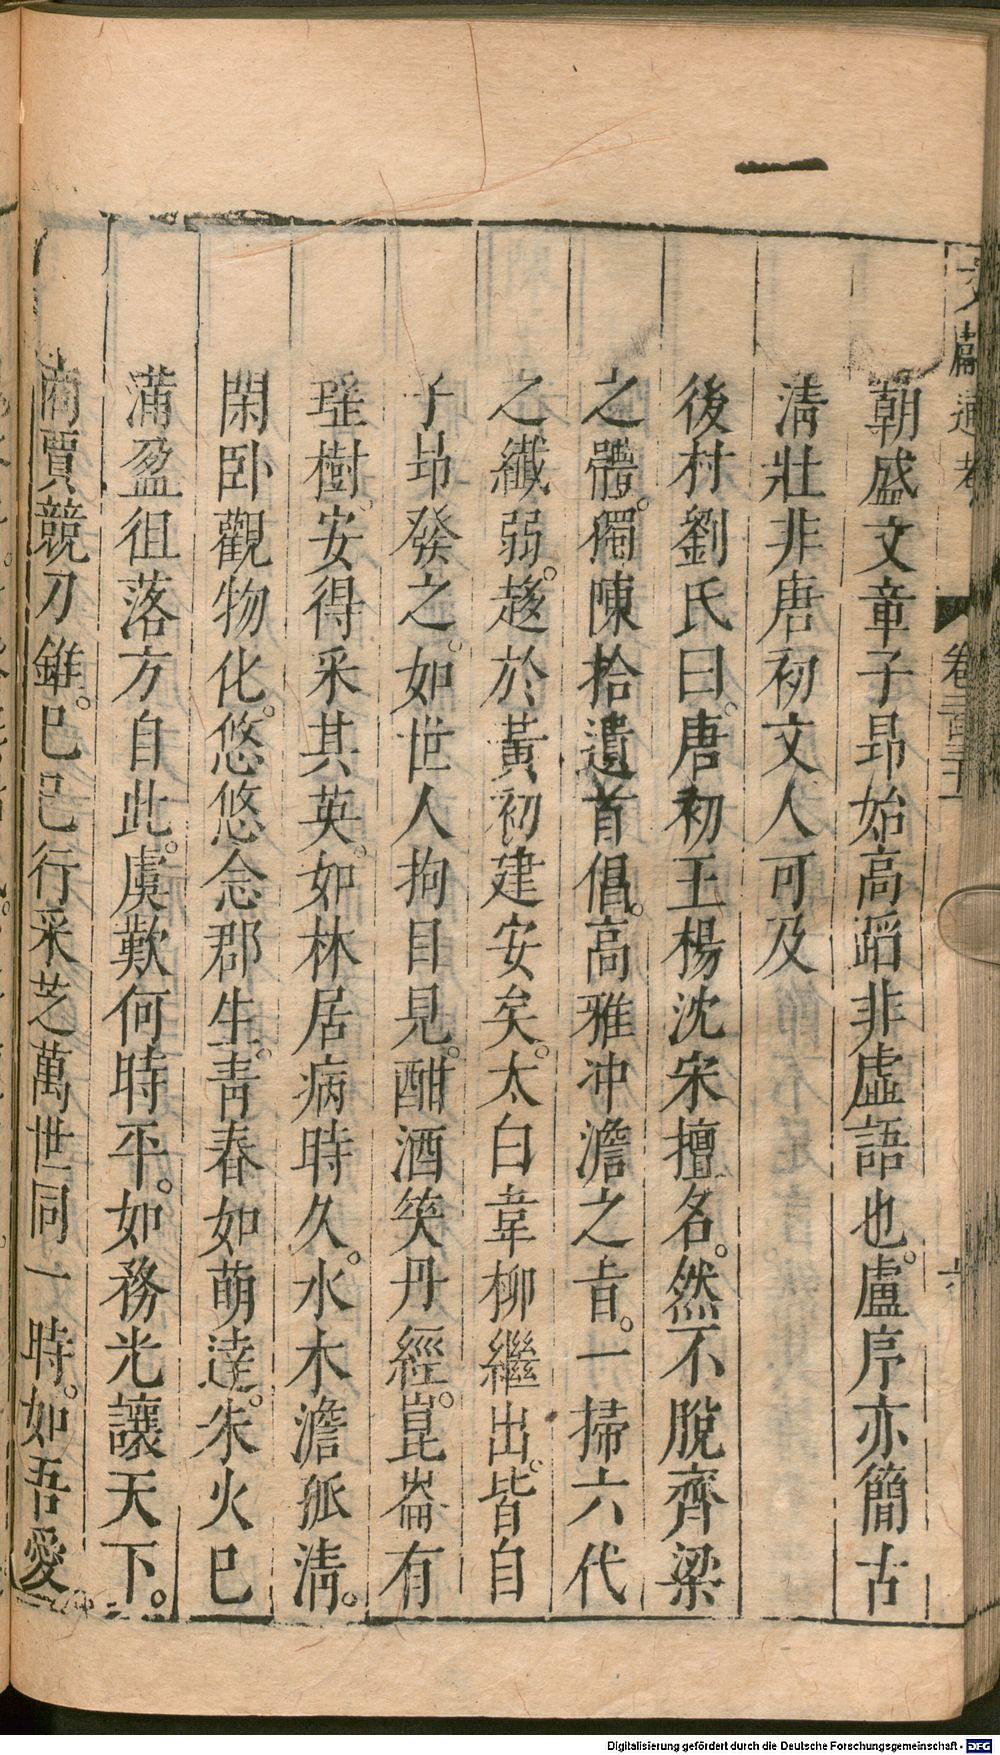 朝盛文章子昻始高蹈非虛語也。盧序亦簡古
淸壯非唐初文人可及
後村劉氏曰。唐初王楊沈宋擅名。然不脫齊梁
之體。獨陳拾遺首倡。高雅冲澹之音。一掃六代
之纖弱。趍於黃初建安矣。太白韋柳繼出。皆自
子昻發之。如世人拘目見。酣酒笑丹經。崑崙有
瑤樹。安得采其英。如林居病時久。水木澹孤淸。
閑臥觀物化。悠悠念郡生。靑春如萌達。朱火已
滿盈徂落方自此。虞歎何時平。如務光讓天下。
商賈競刀錐。已已行采芝萬世同一時。如吾愛
文獻通考
卷二百三十一
六
Digitalisierung gefördert durch die Deutsche Forschungsgemeinschaft - DFG